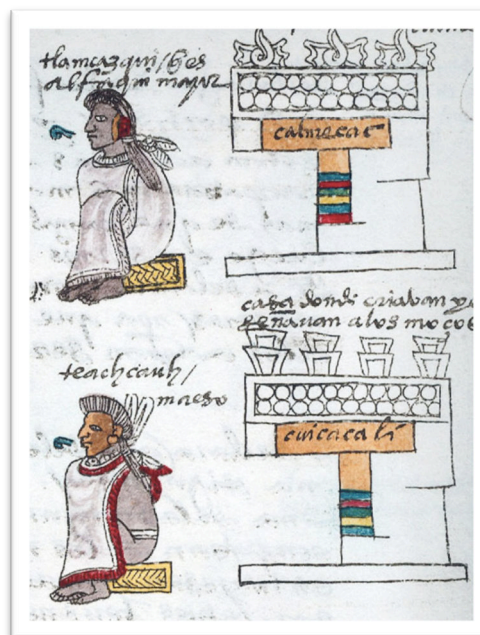 tlamcazqui / q̃ es
alfaqui mayor
calmecac
casa donde criavan y
señavan a los moços
teachcauh /
maeso
cuicacali